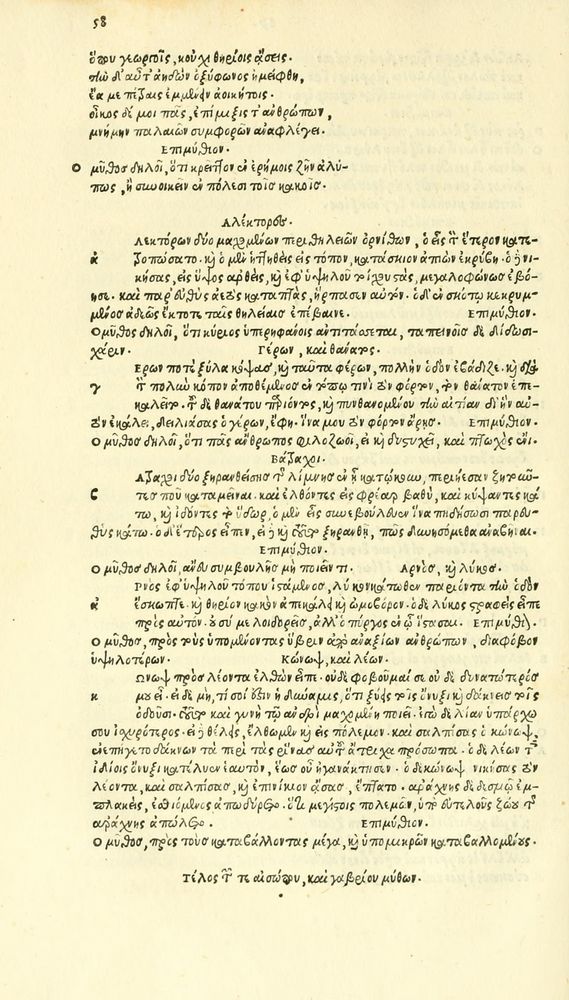 58
ὅπου γεωργοῖς, κοὐχὶ θηρίοις ᾄσεις.
τὴν δ' αὖτ' ἀηδὼν ὀξύφωνος ἠμείφθη,
ἔα με πέτραις ἐμμένειν ἀοικήτοις.
οἶκος δέ μοι πᾶς, ἐπίμιξις τ' ἀνθρώπων,
μνήμην παλαιῶν συμφορῶν ἀναφλέγει.
Επιμύθιον.
Ο μῦθος δηλοῖ, ὅτι κρεῖττον ἐν ἐρήμοις ζῆν ἀλύ-
πως, ἢ συνοικεῖν ἐν πόλεσι τοῖς κακοῖς.
Αλέκτορες.
Λεκτόρων δύο μαχομένων περὶ θηλειῶν ὀρνίθων, ὁ εἷς τὸν ἕτερον κατε-
α τροπώσατο. καὶ ὁ μὲν ἡττηθεὶς εἰς τόπον κατάσκιον ἀπιὼν ἐκρύβη. ὁ δὲ νι-
κήσας, εἰς ὕψος ἀρθεὶς, καὶ ἐφ' ὑψηλοῦ τοίχου στὰς, μεγαλοφώνως ἐβό-
ησε. καὶ παρευθὺς ἀετὸς καταπτὰς, ἥρπασεν αὐτόν. ὁ δ' ἐν σκότῳ κεκρυμ-
μένος ἀδεῶς ἔκτοτε ταῖς θηλείαις ἐπέβαινε. Επιμύθιον.
Ο μῦθος δηλοῖ, ὅτι κύριος ὑπερηφάνοις ἀντιτάσσεται, ταπεινοῖς δὲ δίδωσι
χάριν. Γέρων, καὶ θάνατος.
Ερων ποτὲ ξύλα κόψας, καὶ ταῦτα φέρων, πολλὴν ὁδὸν ἐβάδιζε. καὶ διὰ
γ τὸν πολὺν κόπον ἀποθέμενος ἐν τόπῳ τινὶ τὸν φόρτον, τὸν θάνατον ἐπε-
καλεῖτο. τοῦ δὲ θανάτου παρόντος, καὶ πυνθανομένου τὴν αἰτίαν δι' ἣν αὐ-
τὸν ἐκάλει, δειλιάσας ὁ γέρων, ἔφη. ἵνα μου τὸν φόρτον ἄρῃς. Επιμύθιον.
Ο μῦθος δηλοῖ, ὅτι πᾶς ἄνθρωπος φιλόζωος, εἰ καὶ δυστυχεῖ, καὶ πτωχός ἐστι.
Βάτραχοι.
Ατραχοι δύο ξηρανθείσης τῆς λίμνης ἐν ᾗ κατῴκουν, περιῄεσαν ζητοῦν-
ς τες ποῦ καταμεῖναι. καὶ ἐλθόντες εἰς φρέαρ βαθὺ, καὶ κύψαντες κά
τω, καὶ ἰδόντες τὸ ὕδωρ, ὁ μὲν εἷς συνεβούλευεν ἵνα πηδήσωσι παρευ-
θὺς κάτω. ὁ δ' ἕτερος εἶπεν, εἰ καὶ τοῦτο ξηρανθῇ, πῶς δυνησόμεθα ἀναβῆναι.
Επιμύθιον.
Ο μῦθος δηλοῖ, ἄνευ συμβουλῆς μὴ ποιεῖν τι. Αρνὸς, καὶ λύκος.
Ρνὸς ἐφ' ὑψηλοῦ τόπου ἱστάμενος, λύκον κάτωθεν παριόντα τὴν ὁδὸν
α ἔσκωπτε. καὶ θηρίον κακὸν ἀπεκάλει καὶ ὠμοβόρον. ὁ δὲ λύκος στραφεὶς εἶπε
πρὸς αὐτόν. οὐ σύ με λοιδορεῖς, ἀλλ' ὁ πύργος ἐν ᾧ ἵστασαι. Επιμύθι.
Ο μῦθος, πρὸς τοὺς ὑπομένοντας ὕβριν ἀπὸ ἀναξίων ἀνθρώπων, διὰ φόβον
ὑψηλοτέρων. Κώνωψ, καὶ λέων.
Ωνωψ πρὸς λέοντα ἐλθὼν εἶπε. οὐδὲ φοβοῦμαί σε οὐδὲ δυνατώτερός
κ μου εἶ. εἰ δὲ μὴ, τί σοί ἐστιν ἡ δύναμις, ὅτι ξύεις τοῖς ὄνυξι καὶ δάκνεις τοῖς
ὀδοῦσι. τοῦτο καὶ γυνὴ τῷ ἀνδρὶ μαχομένη ποιεῖ. ἐγὼ δὲ λίαν ὑπάρχω
σου ἰσχυρότερος. εἰ δὲ θέλεις, ἔλθωμεν καὶ εἰς πόλεμον. καὶ σαλπίσας ὁ κώνωψ,
ἐνεπήγετο δάκνων τὰ περὶ τὰς ῥῖνας αὐτοῦ ἄτριχα πρόσωπα. ὁ δὲ λέων τοῖς
ἰδίοις ὄνυξι κατέλυεν ἑαυτὸν, ἕως οὗ ἠγανάκτησεν. ὁ δὲ κώνωψ νικήσας τὸν
λέοντα, καὶ σαλπίσας, καὶ ἐπινίκιον ᾄσας, ἔπτατο. ἀράχνης δὲ δεσμῷ ἐμ-
πλακεὶς, ἐσθιόμενος ἀπωδύρετο. ὅτι μεγίστοις πολεμῶν, ὑπὸ εὐτελοῦς ζώου τῆς
ἀράχνης ἀπώλετο. Επιμύθιον.
Ο μῦθος, πρὸς τοὺς καταβάλλοντας μέγα, καὶ ὑπὸ μικρῶν καταβαλλομένους.
Τέλος τῶν τε αἰσώπου, καὶ γαβρίου μύθων.